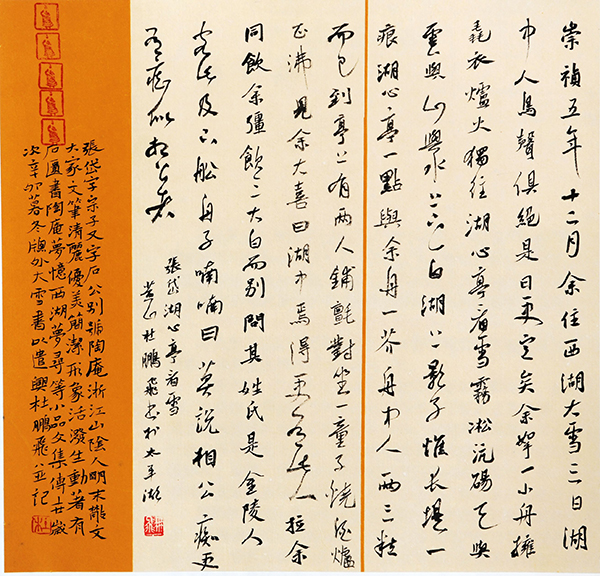 崇禎五年十二月余住西湖大雪三日湖
中人鳥聲俱絕是日更定矣余挐一小舟擁
毳衣爐火獨往湖心亭看雪霧凇沆碭天與
雲與山與水上下一白湖上影子惟長堤一
痕湖心亭一點與余舟一芥舟中人兩三粒
而已到亭上有兩人鋪氈對坐一童子燒酒爐
正沸見余大喜曰湖中焉得更有此人拉余
同飲余彊飲三大白而別問其姓氏是金陵人
客此及下船舟子喃喃曰莫說相公癡更
有癡似相公者
張岱湖心亭看雪
黃山杜鵬飛書於太平湖
張岱字宗子又字石公別號陶庵浙江山陰人明末散文
大家文筆清麗優美簡潔形象活潑生動著有
石匱書陶庵夢憶西湖夢尋等小品文集傳世歲
次辛卯暮冬牕外大雪書以遣興杜鵬飛並記